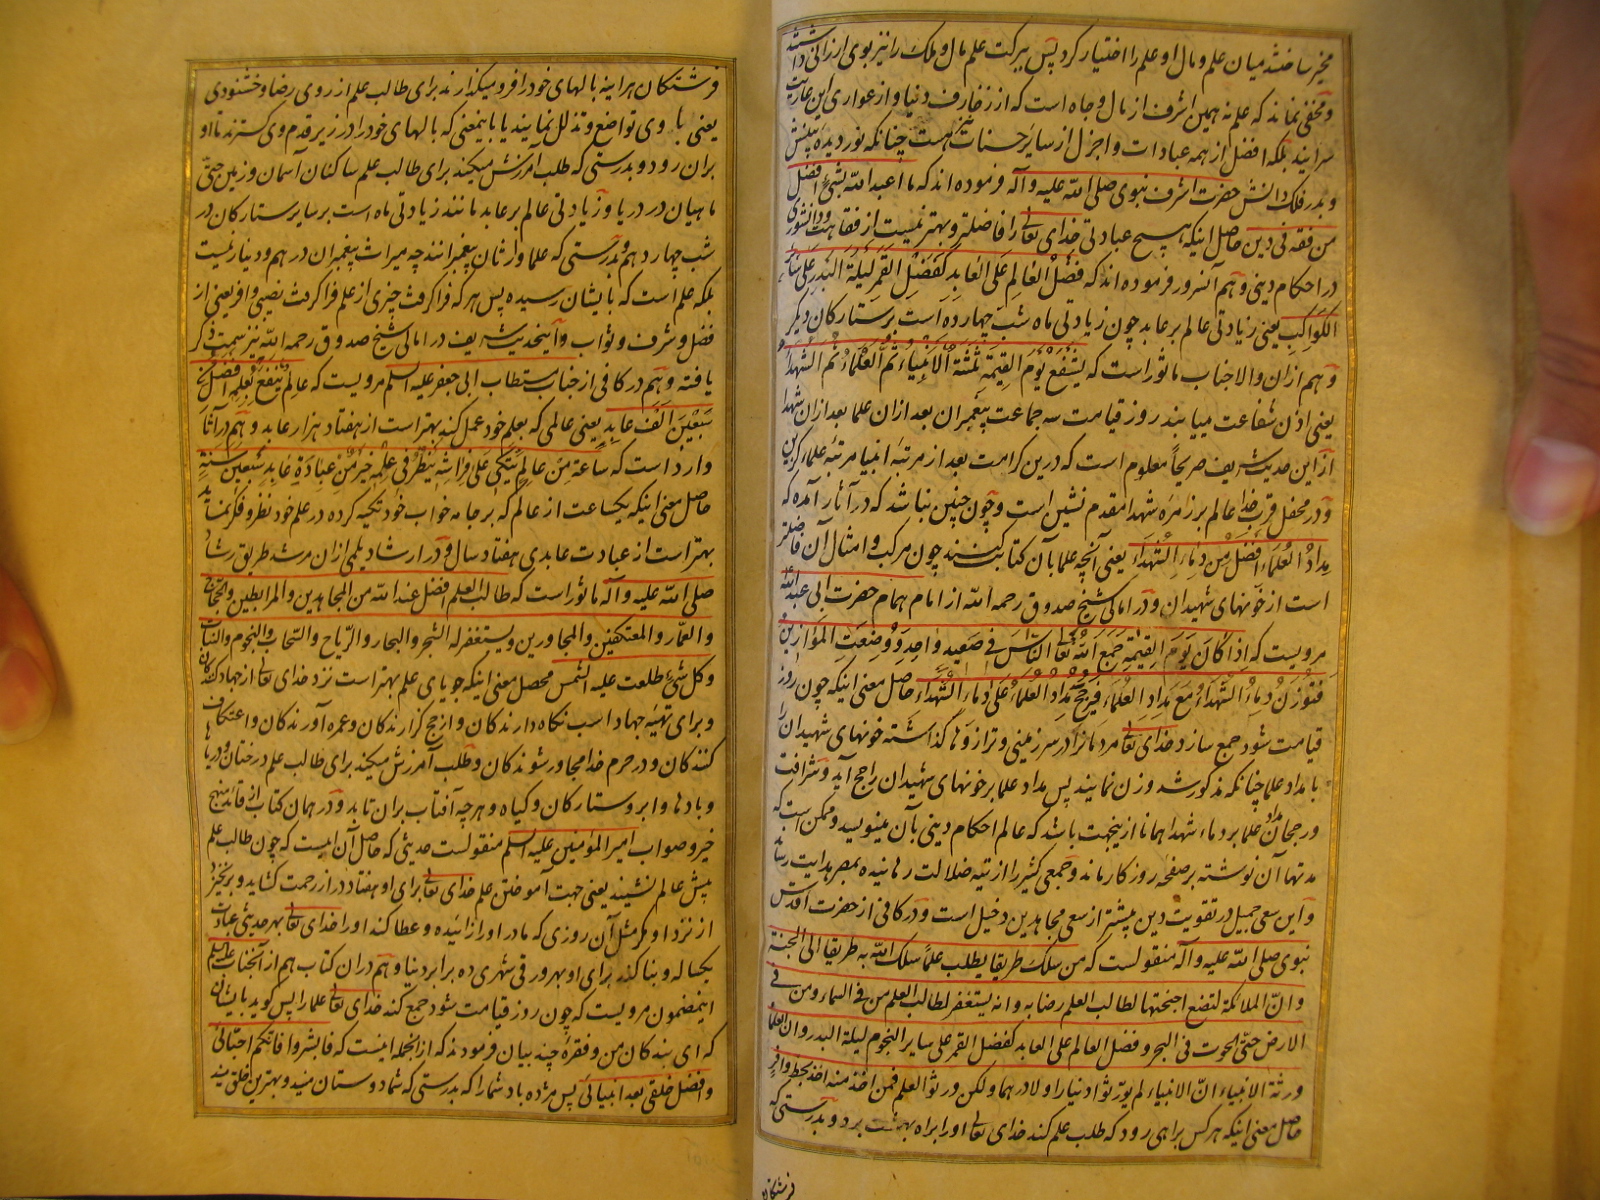 مخیر ساختند میان علم و مال او علم را اختیار کرد پس ببرکت علم مال و ملک را نیز بوی ارزانی داشتند
و مخفی نماند که علم نه همین اشرف از مال و جاه است که از زخارف دنیا و از عواری این عاریت
سرایند بلکه افضل از همه عبادات و اجزل از سایر حسنات نیز هست چنانکه نور دیده بینش
و بدر فلک دانش حضرت اشرف نبوی صلی الله علیه و آله فرموده اند که ما اعبد الله بشیء افضل
من فقه فی دین حاصل اینکه هیچ عبادتی خدای تعالی را فاضلتر و بهتر نیست از فقاهت و دانشوری
در احکام دینی و هم آنسرور فرموده اند که فَضْلُ العَالِمِ عَلَی العَابِدِ کَفَضْلِ القَمَرِ لَیْلَةَ البَدْرِ عَلی سَائِرِ
الکَوَاکِبِ یعنی زیادتی عالم بر عابد چون زیادتی ماه شب چهارده است بر ستارکان دیکر
و هم از ان والاجناب ماثور است که یَشْفَعُ یَوْمَ القِیمَةِ ثَلثَةٌ الاَنْبِیَاءُ ثُمَّ العُلَمَاءُ ثُمَّ الشُّهَدَاءُ
یعنی اذن شفاعت مییابند روز قیامت سه جماعت پیغمبران بعد از ان علما بعد از ان شهدا
از این حدیث شریف صریحاً معلوم است که درین کرامت بعد از مرتبه انبیا مرتبه علماء کزین
و در محفل قرب خدا عالم بر زمره شهدا مقدم نشین است و چون چنین نباشد که در آثار آمده که
مِدَادُ العُلَمَاءِ اَفْضَلُ مِن دِمَاءِ الشُّهَدَاءِ یعنی آنچه علما بآن کتابت کنند چون مرکب و امثال آن فاضلتر
است از خونهای شهیدان و در امالی شیخ صدوق رحمه الله از امام همام حضرت ابی عبد الله
مرویست که اِذَا کَانَ یَوْمَ القِیمَةِ جَمَعَ اللهُ تَعَالَی النَّاسَ فی صَعِیدٍ وَاحِدٍ وَ وُضِعَتِ المَوَازِینُ
فَتُوزَنُ دِمَاءُ الشُّهَدَاءِ مَعَ مِدَادِ العُلَمَاءِ فَیَرْجَحُ مِدَادُ العُلَمَاءِ عَلَی دِمَاءِ الشُّهَدَاءِ حاصل معنی اینکه چون روز
قیامت شود جمع سازد خدای تعالی مردمانرا در سرزمینی و ترازوها کذاشته خونهای شهیدان را
با مداد علما چنانکه مذکور شد وزن نمایند پس مداد علما بر خونهای شهیدان راجح آید و شرافت
و رجحان مداد علما بر دماء شهدا همانا ازینجهت باشد که عالم احکام دینی بآن مینویسد و ممکن است که
مدتها آن نوشته بر صفحه روزکار ماند و جمعی کثیر را از تیه ضلالت رهانیده بمصر هدایت رساند
و این سعی جمیل در تقویت دین بیشتر از سعی مجاهدین دخیل است و در کافی از حضرت اقدس
نبوی صلی الله علیه و آله منقولست که من سلک طریقا یطلب علماً سلک الله به طریقا الی الجنة
و ان الملائکة لتضع اجنحتها لطالب العلم رضا به و انه یستغفر لطالب العلم من فی السماء و من فی
الارض حتی الحوت فی البحر و فضل العالم علی العابد کفضل القمر علی سایر النجوم لیلة البدر و ان العلماء
ورثة الانبیاء ان الانبیاء لم یورثوا دینارا و لا درهما و لکن ورثوا العلم فمن اخذ منه اخذ بحظ وافر
حاصل معنی اینکه هر کس براهی رود که طلب علم کند خدای تعالی او را براه بهشت برد و بدرستی که
فرشتکان
فرشتکان هر اینه بالهای خود را فرو میکذارند برای طالب علم از روی رضا و خشنودی
یعنی با وی تواضع و تذلل نمایند یا باینمعنی که بالهای خود را در زیر قدم وی کسترند تا او
بران رود و بدرستی که طلب آمرزش میکند برای طالب علم ساکنان آسمان و زمین حتی
ماهیان در دریا و زیادتی عالم بر عابد مانند زیادتی ماه است بر سایر ستارکان در
شب چهاردهم و بدرستی که علما وارثان پیغمبرانند چه میراث پیغمبران درهم و دینار نیست
بلکه علم است که بایشان رسیده پس هر که فرا کرفت چیزی از علم فرا کرفت نصیبی وافر یعنی از
فضل و شرف و ثواب و آینحدیث شریف در امالی شیخ صدوق رحمه الله نیز سمت ذکر
یافته و هم در کافی از جناب مستطاب ابی جعفر علیه السلم مرویست که عالم یُنْتَفَعُ بِعِلْمِهِ اَفْضَلُ مِنْ
سَبْعِینَ اَلْفَ عابِدٍ یعنی عالمی که بعلم خود عمل کند بهتر است از هفتاد هزار عابد و هم در آثار
وارد است که سَاعَة مِن عالِمٍ یَتَّکِی عَلَی فِرَاشِهِ یَنْظُرُ فی عِلْمِهِ خَیْرٌ مِّنْ عِبَادَةِ عَابِدٍ سَبْعِینَ سَنَةٍ
حاصل معنی اینکه یکساعت از عالم که بر جامه خواب خود تکیه کرده در علم خود نظر و فکر نماید
بهتر است از عبادت عابدی هفتاد سال و در ارشاد دیلمی از ان مرشد طریق رشاد
صلی الله علیه و آله ماثور است که طالب العلم افضل عند الله من المجاهدین و المرابطین و الحجاج
و العمّار و المعتکفین و المجاورین و یستغفر له الشجر و البحار و الریاح و السحاب و النجوم و النبات
و کل شیء طلعت علیه الشمس محصل معنی اینکه جویای علم بهتر است نزد خدای تعالی از جهاد کنندکان
و برای تهیه جهاد اسب نکاه دارندکان و از حج کزارندکان و عمره آورندکان و اعتکاف
کنندکان و در حرم خدا مجاور شوندکان و طلب آمرزش میکند برای طالب علم درختان و دریاها
و بادها و ابر و ستارکان و کیاه و هر چه آفتاب بران تابد و در همان کتاب از قائد منهج
خیر و صواب امیر المؤمنین علیه السلم منقولست حدیثی که حاصل آن اینست که چون طالب علم
پیش عالم نشیند یعنی جهت آموختن علم خدای تعالی برای او هفتاد در از رحمت کشاید و برنخیزد
از نزد او مکر مثل آن روزی که مادر او را زائیده و عطا کند او را خدای تعالی بهر حدیثی عبادت
یکساله و بنا کند برای او بهر ورقی شهری ده برابر دنیا و هم دران کتاب هم از آنجناب علیه السلم
اینمضمون مرویست که چون روز قیامت شود جمع کند خدای تعالی علما را پس کوید بایشان
که ای بندکان من و فقره چند بیان فرمودند که از انجمله اینست که فابشروا فانکم احبائی
و افضل خلقی بعد انبیائی پس مژده باد شما را که بدرستی که شما دوستان منید و بهترین خلق منید